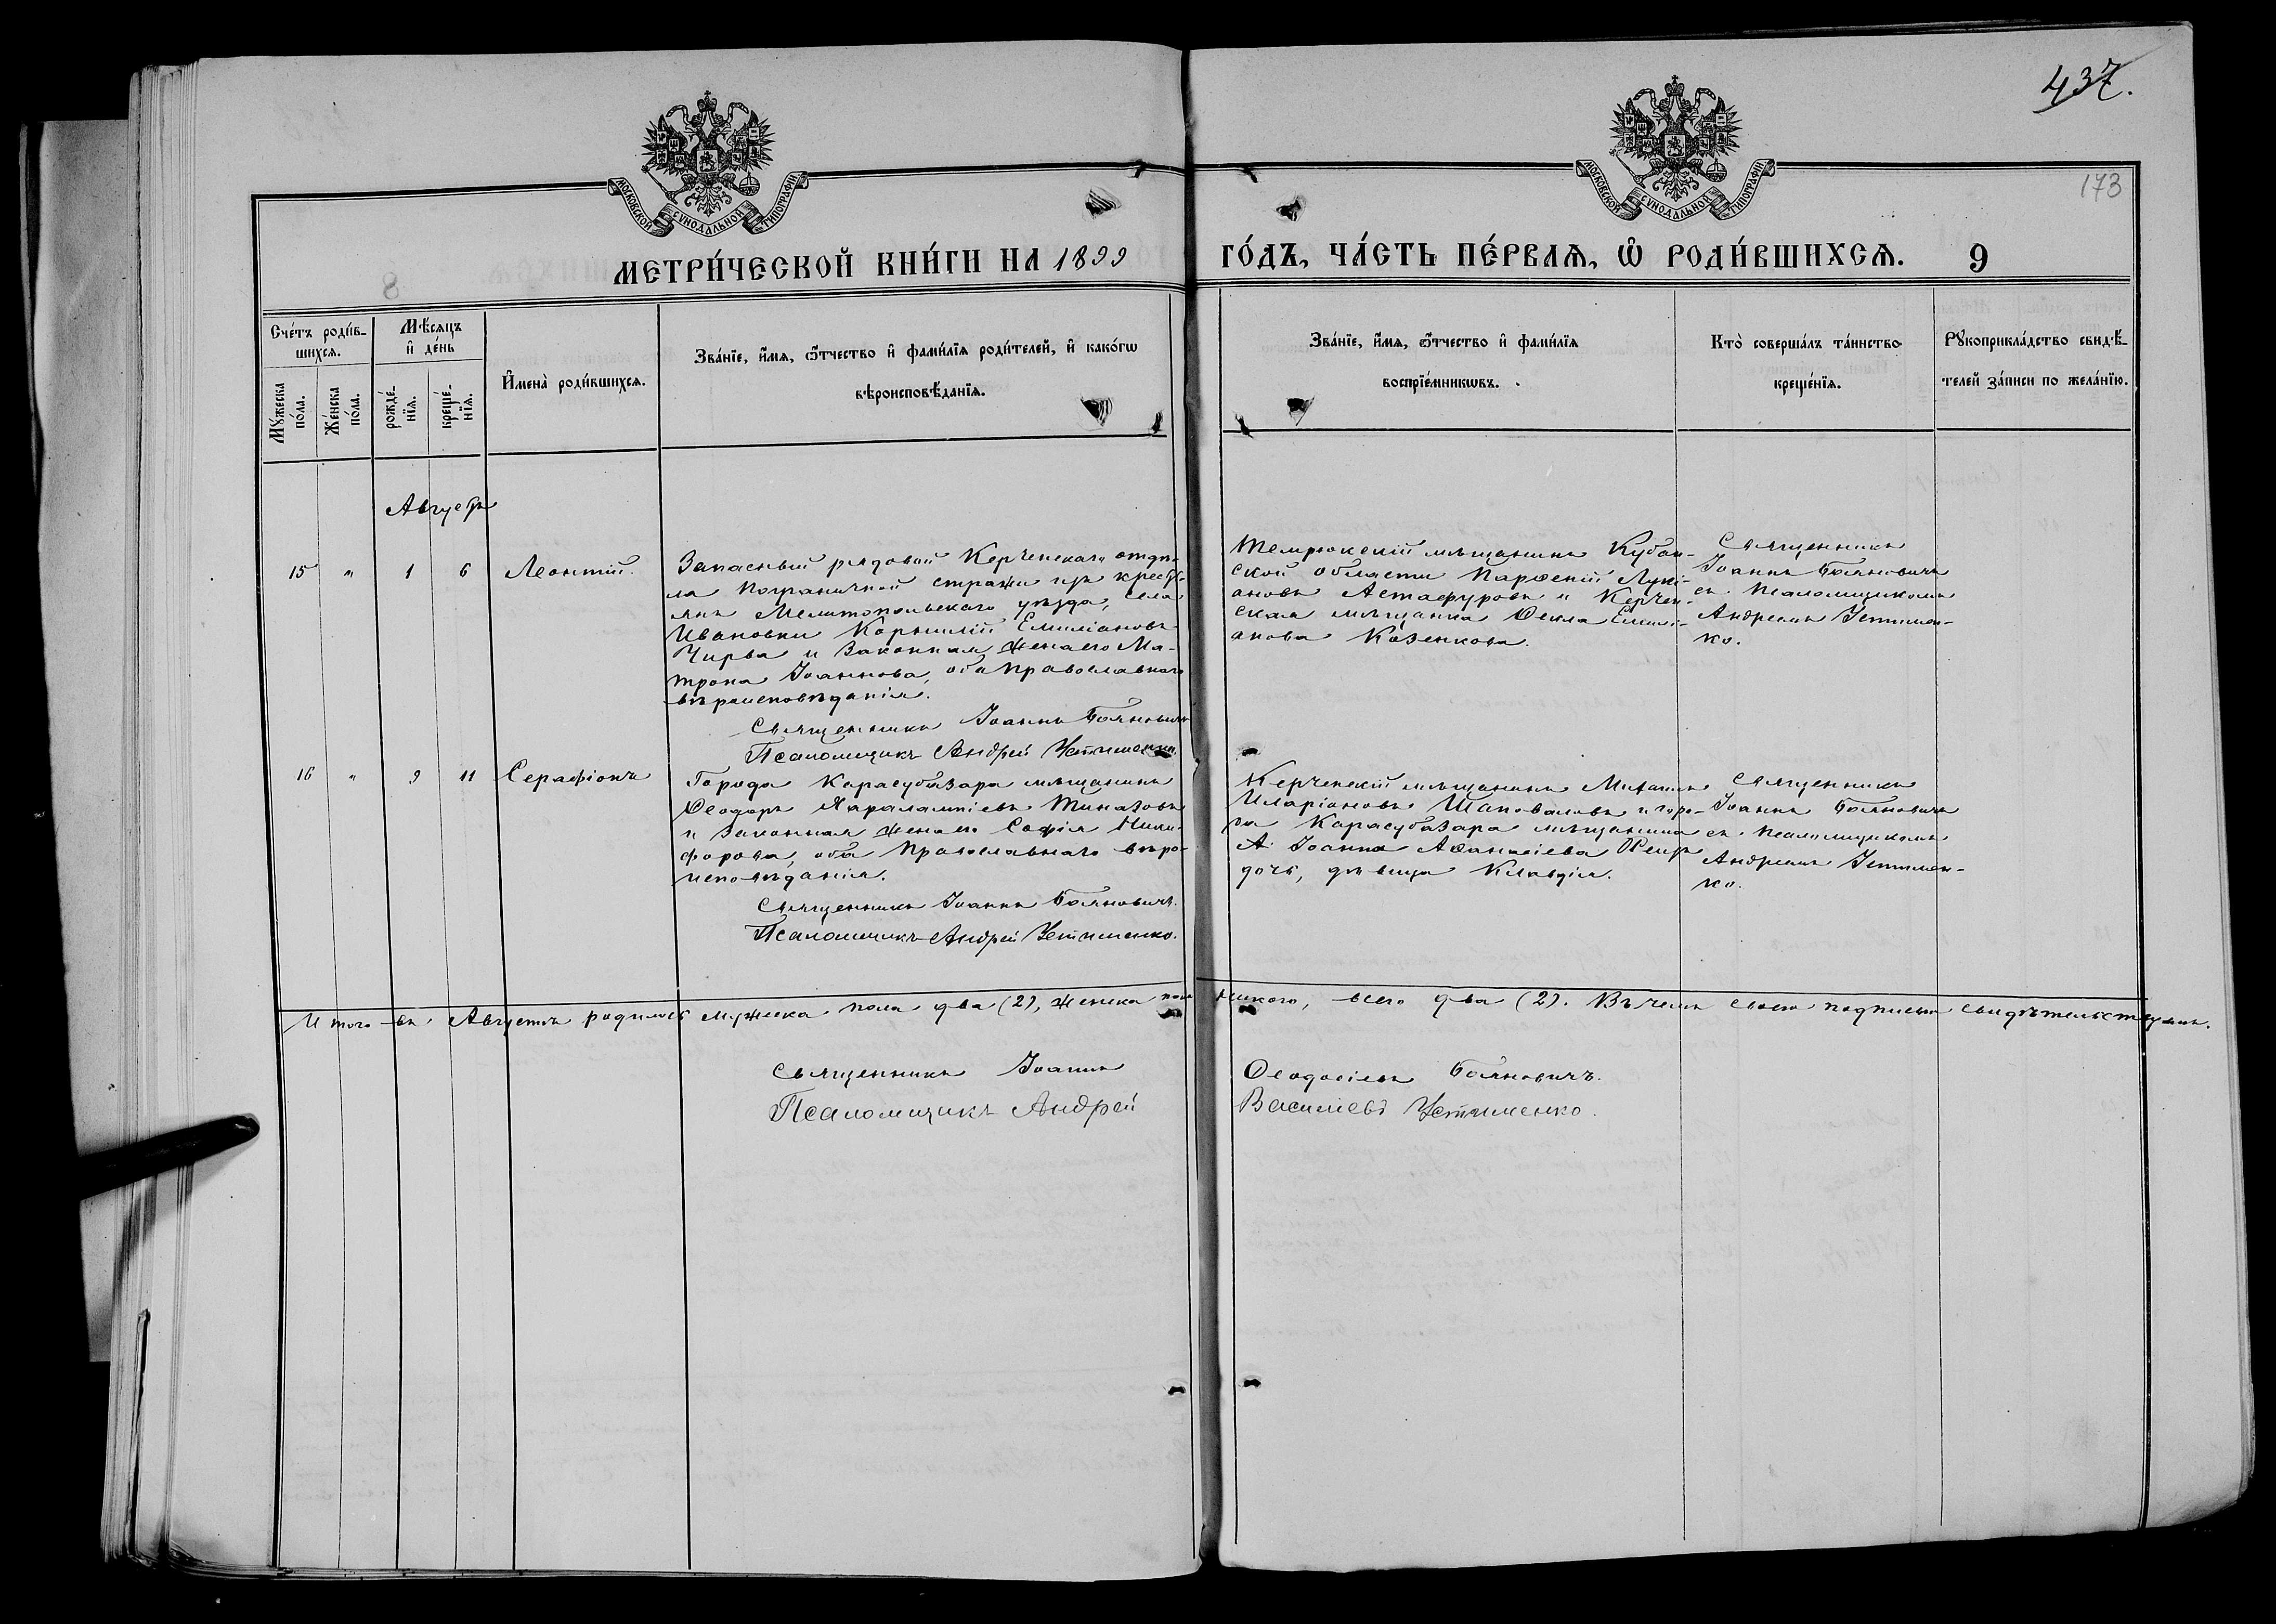 437.
173
МОСКОВСКОЙ СѴНОДАЛЬНОЙ ТИПОГРАФІИ
МОСКОВСКОЙ СѴНОДАЛЬНОЙ ТИПОГРАФІИ
МЕТРИ́ЧЕСКОЙ КНИ́ГИ НА 1899
ГО́ДЪ, ЧА́СТЬ ПЕ́РВАѦ, Ѽ РОДИ́ВШИХСѦ. 9
Сче́тъ роди́в-
шихсѧ.
Мѣ́сѧцъ
и҆ де́нь
Мꙋ́жеска
по́ла.
Же́нска
по́ла.
рожде́-
нїѧ.
креще́-
нїѧ.
И҆мена̀ роди́вшихсѧ.
Зва́нїе, и҆́мѧ, ѻ҆́тчество и҆ фами́лїѧ роди́телей, и҆ како́гѡ
вѣроисповѣ́данїѧ.
Зва́нїе, и҆́мѧ, ѻ҆́тчество и҆ фами́лїѧ
воспрїе́мникѡвъ.
Кто̀ соверша́лъ та́инство
креще́нїѧ.
Рꙋкоприкла́дство свидѣ́-
телей за́писи по жела́нїю.
Августъ
15 " 1 6 Леонтій.
Запасный рядовой Керченскаго отдѣ-
ла пограничной стражи изъ кресть-
янъ Мелитопольскаго уѣзда, села
Ивановки Корнилій Емиліановъ
Чирва и законная жена его Ма-
трона Іоаннова, оба православнаго
вѣроисповѣданія.
Священникъ Іоаннъ Бояновичъ
Псаломщикъ Андрей Устименко.
Темрюкскій мѣщанинъ Кубан-
ской области Парѳеній Лукі-
ановъ Астафуровъ и Керчен-
ская мѣщанка Ѳекла Емилі-
анова Козенкова.
Священникъ
Іоаннъ Бояновичъ
съ псаломщикомъ
Андреемъ Устимен-
ко.
16 " 9 11 Серапіонъ
Города Карасубазара мѣщанинъ
Ѳеодоръ Харалампіевъ Тиназовъ
и законная жена его Софія Ники-
форова, оба православнаго вѣро-
исповѣданія.
Священникъ Іоаннъ Бояновичъ.
Псаломщикъ Андрей Устименко.
Керченскій мѣщанинъ Михаилъ
Иларіоновъ Шаповаловъ и горо-
да Карасубазара мѣщанина
Іоанна Аѳанасіева
дочь, дѣвица Клавдія.
Священникъ
Іоаннъ Бояновичъ
съ псаломщикомъ
Андреемъ Устимен-
ко.
Итого въ Августѣ родилось мужеска пола два (2), женска пола никого, всего два (2). Въ чемъ своею подписью свидѣтельствуемъ.
Священникъ Іоаннъ Ѳеодосіевъ Бояновичъ.
Псаломщикъ Андрей Василіевъ Устименко.